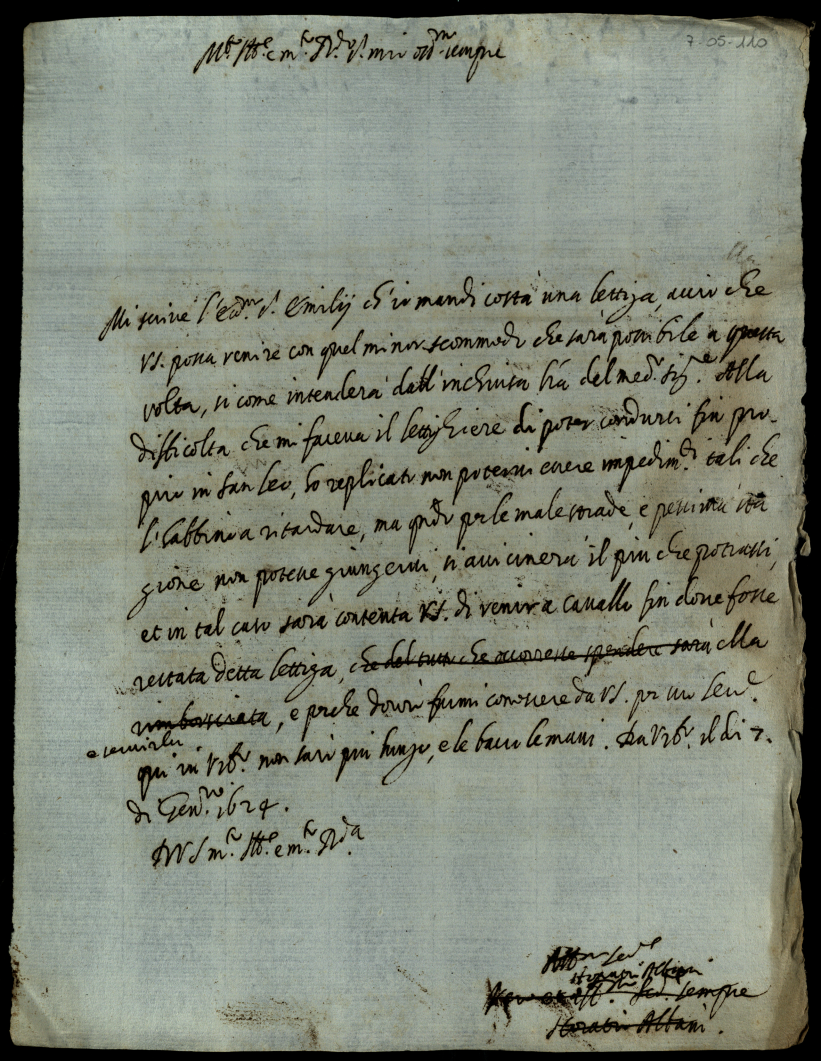 7-05-110
M.to Ill.e e m.to R.do S.r mio oss.mo sempre
Mi scrive l'Ecc.mo S.r Emilij ch'io mandi costà una lettiga, acciò che
VS. possa venire con quel minor scommodo che sarà possibile a questa
volta, si come intenderà dall'inchiusa l'ra del med.mo Sig.re Alla
difficoltà che mi faceva il lettighiere di poter condursi fin pro-
prio in San Leo, ho replicato non potervi essere impedim.ti tali che
l'habbino a ritardare, ma q'ndo p'r le male strade, e pessima sta
gione non potesse giungervi, si avvicinerà il più che potrassi,
et in tal caso sarà contenta VS. di venir a cavallo fin dove fosse
restata detta lettiga, che del tutto che occorresse spendere sarà ella
rimborsata, e perche dovrò farmi conoscere da VS. per suo Ser.re
e servirla
qui in Urb.o non sarò più lungo, e le bacio le mani. Da Urb.o il di 7.
di Genn.ro 1624.
D VS m.to Ill.e e m.to R.da
Aff.mo Ser.re
Horatio Albani
Aff.mo Ser.re sempre
Horatio Albani.